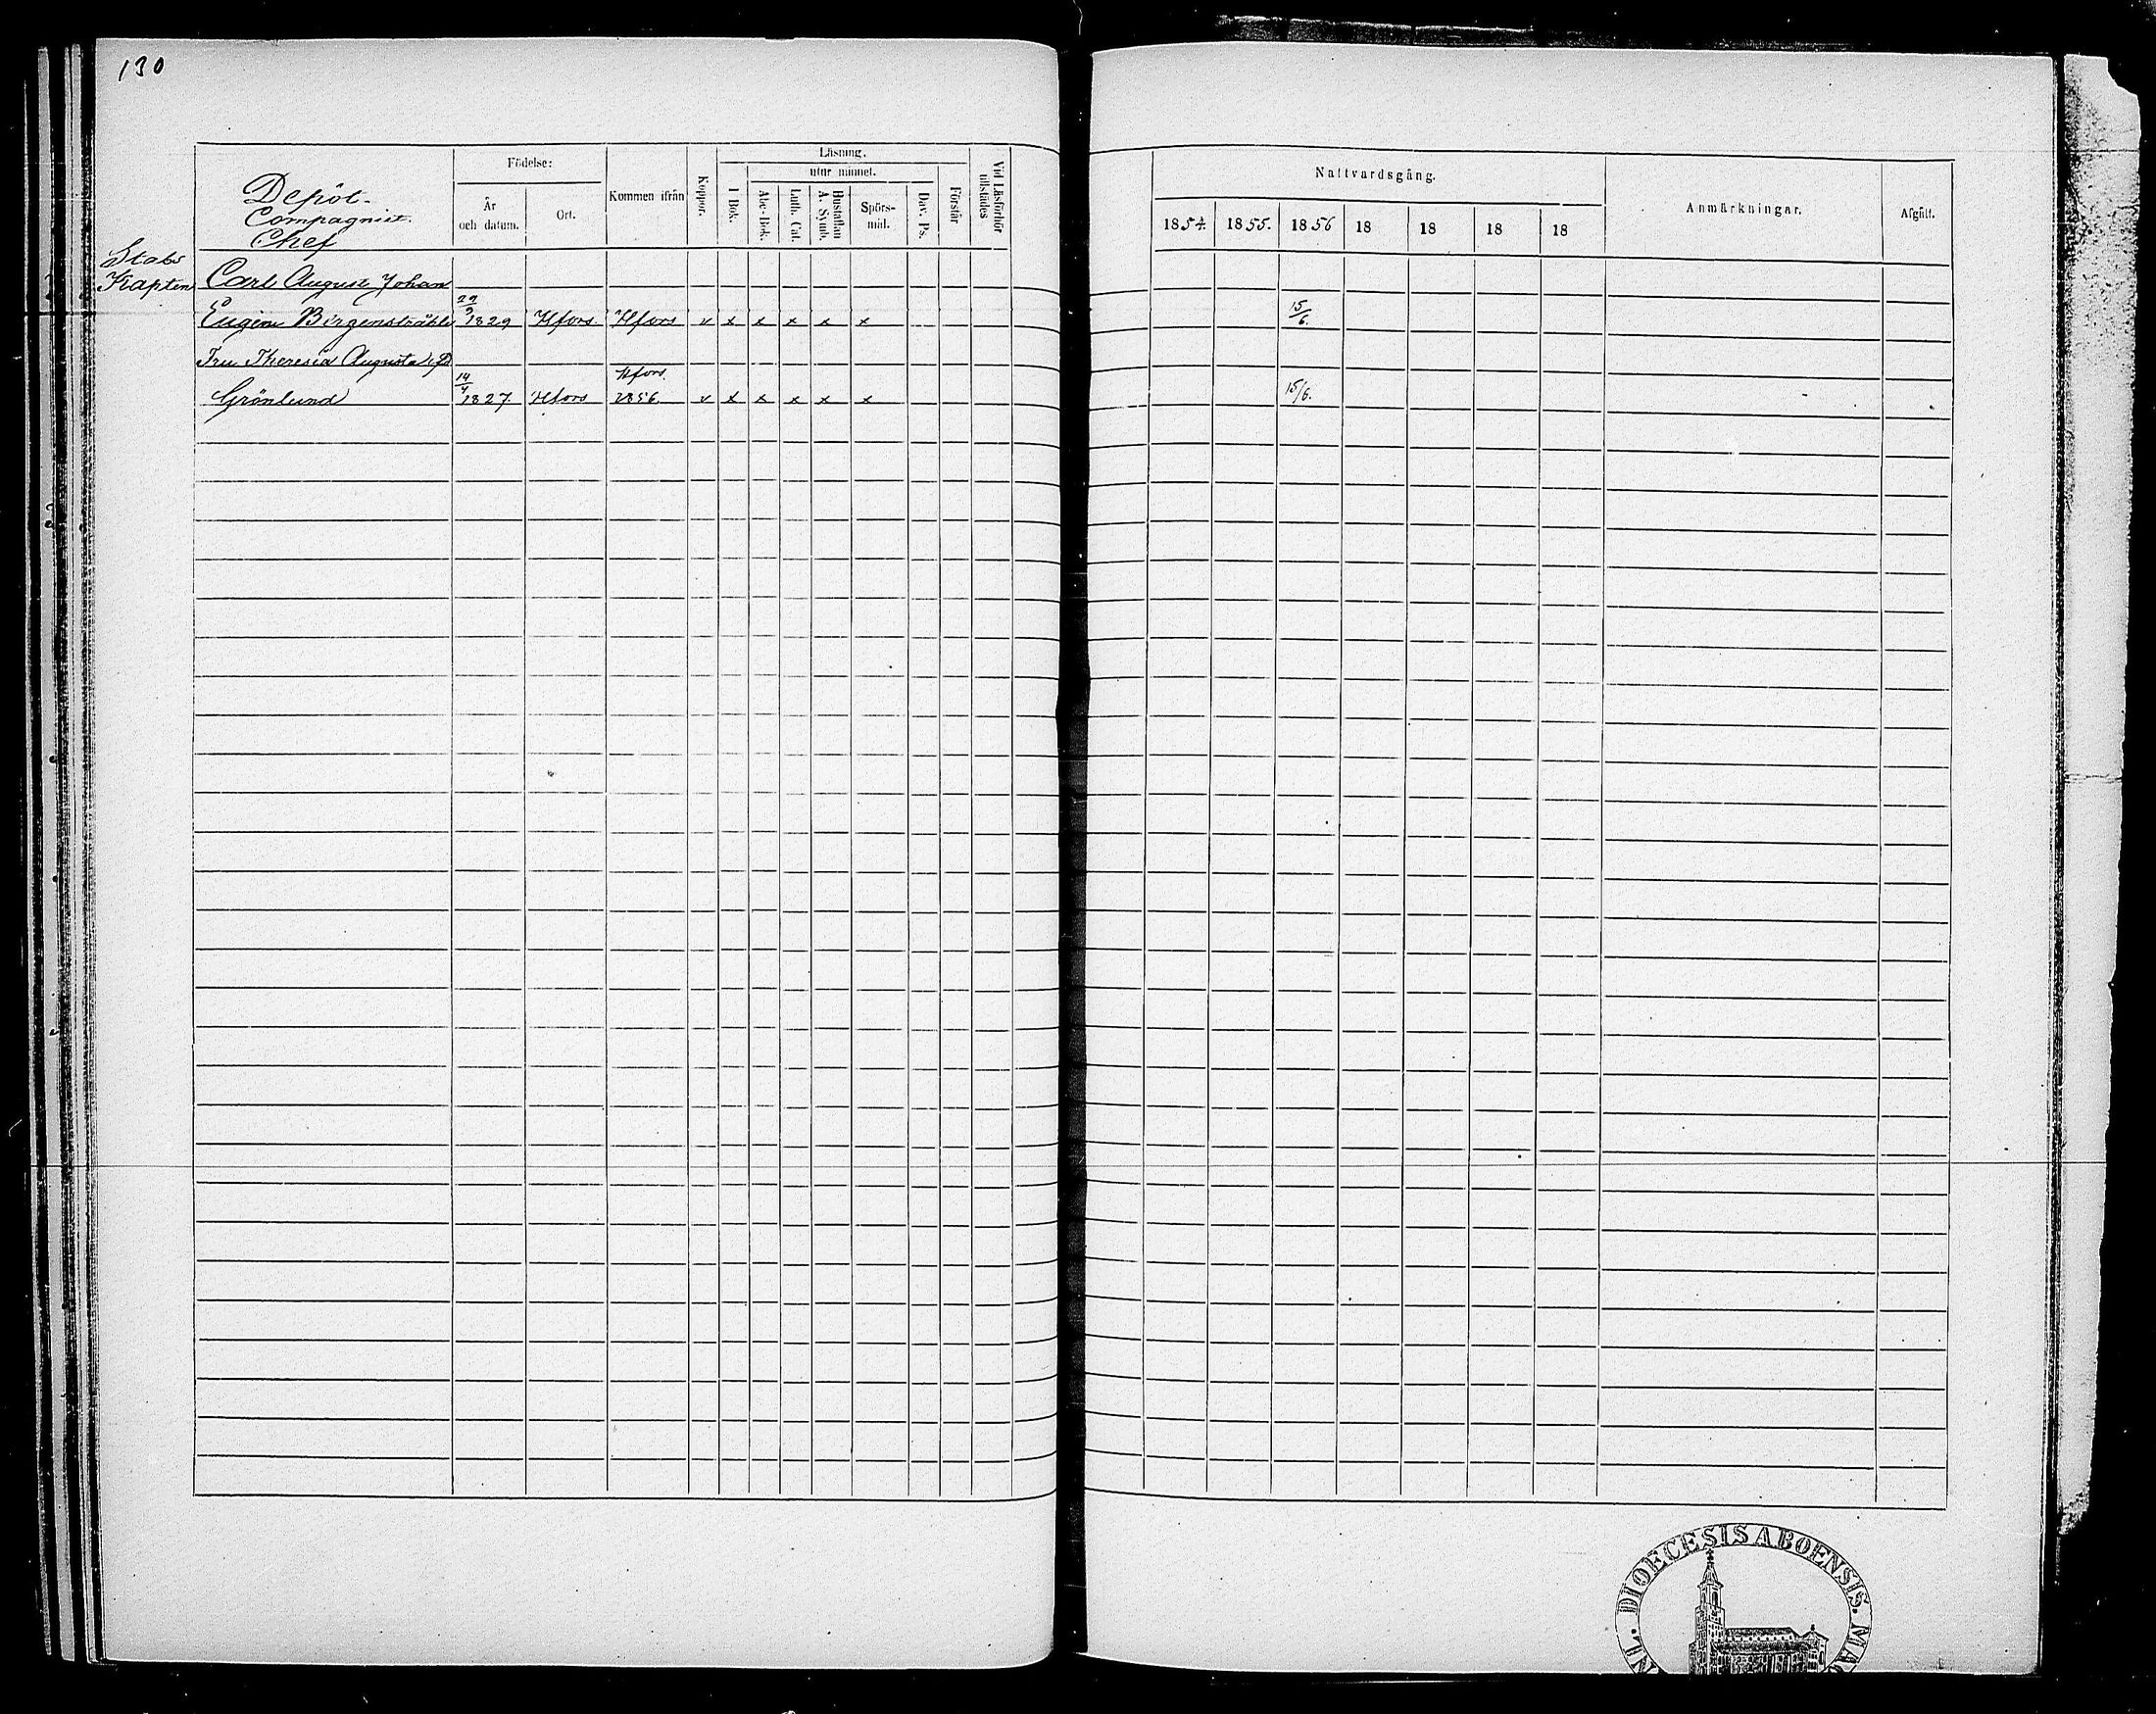 130
Födelse:
Läsning.
utur minnet.
Depôt-
Compagniet.
Chef
År
och datum.
Ort.
Kommen ifrån
Koppor.
I Bok.
Abc-Bok.
Luth. Cat.
Hustaflan
A. Symb.
Spörs-
mål.
Dav. Ps.
Förstår
Vid Läsförhör
tillstädes
Nattvardsgång.
1854. 1855. 1856 18 18 18 18
Anmärkningar.
Afgått.
Stabs
Kapten
Carl August Johan
Eugène Birgenstråhle 29/9 1829 Hfors. Hfors v x x x x x 15/6.
Fru Theresia Augusta
Hfors.
Grönlund 14/4 1827 Hfors 1856 v x x x x x 15/6.
DIOECESIS ABOENSIS.